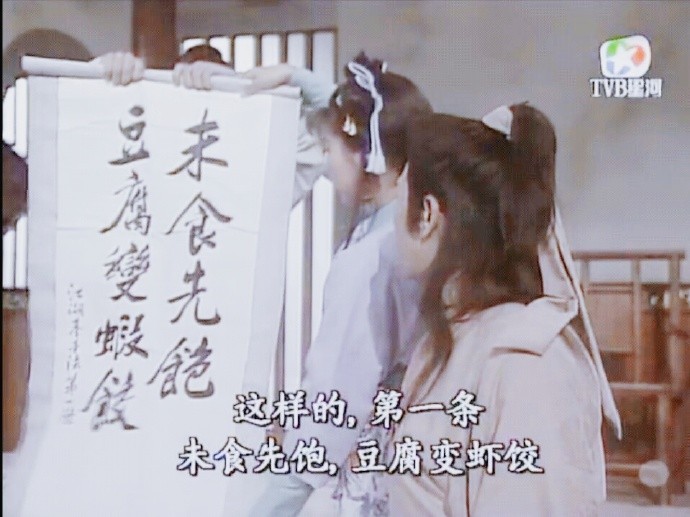 TVB星河
未食先飽
豆腐變蝦餃
江湖
法第一
这样的, 第一条
未食先饱, 豆腐变虾饺